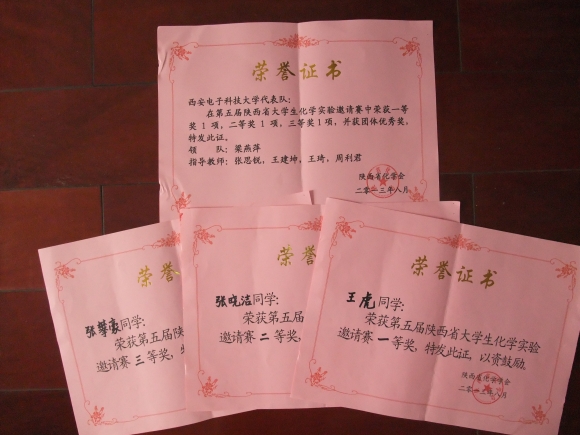 荣誉证书
西安电子科技大学代表队:
在第五届陕西省大学生化学实验邀请赛中荣获一等
奖1项,二等奖1项,三等奖1项,并获团体优秀奖,
特发此证。
领 队:梁燕萍
指导教师:张思锐,王建坤,王琦,周利君
陕西省化学会
二零一三年八月
荣誉
张攀豪同学:
荣获第五届陕
邀请赛 三 等奖,
荣誉
张晓洁同学:
荣获第五届
邀请赛 二 等奖,
荣誉证书
王虎同学:
荣获第五届陕西省大学生化学实验
邀请赛 一 等奖,特发此证,以资鼓励。
陕西省化学学会
二零一三年八月